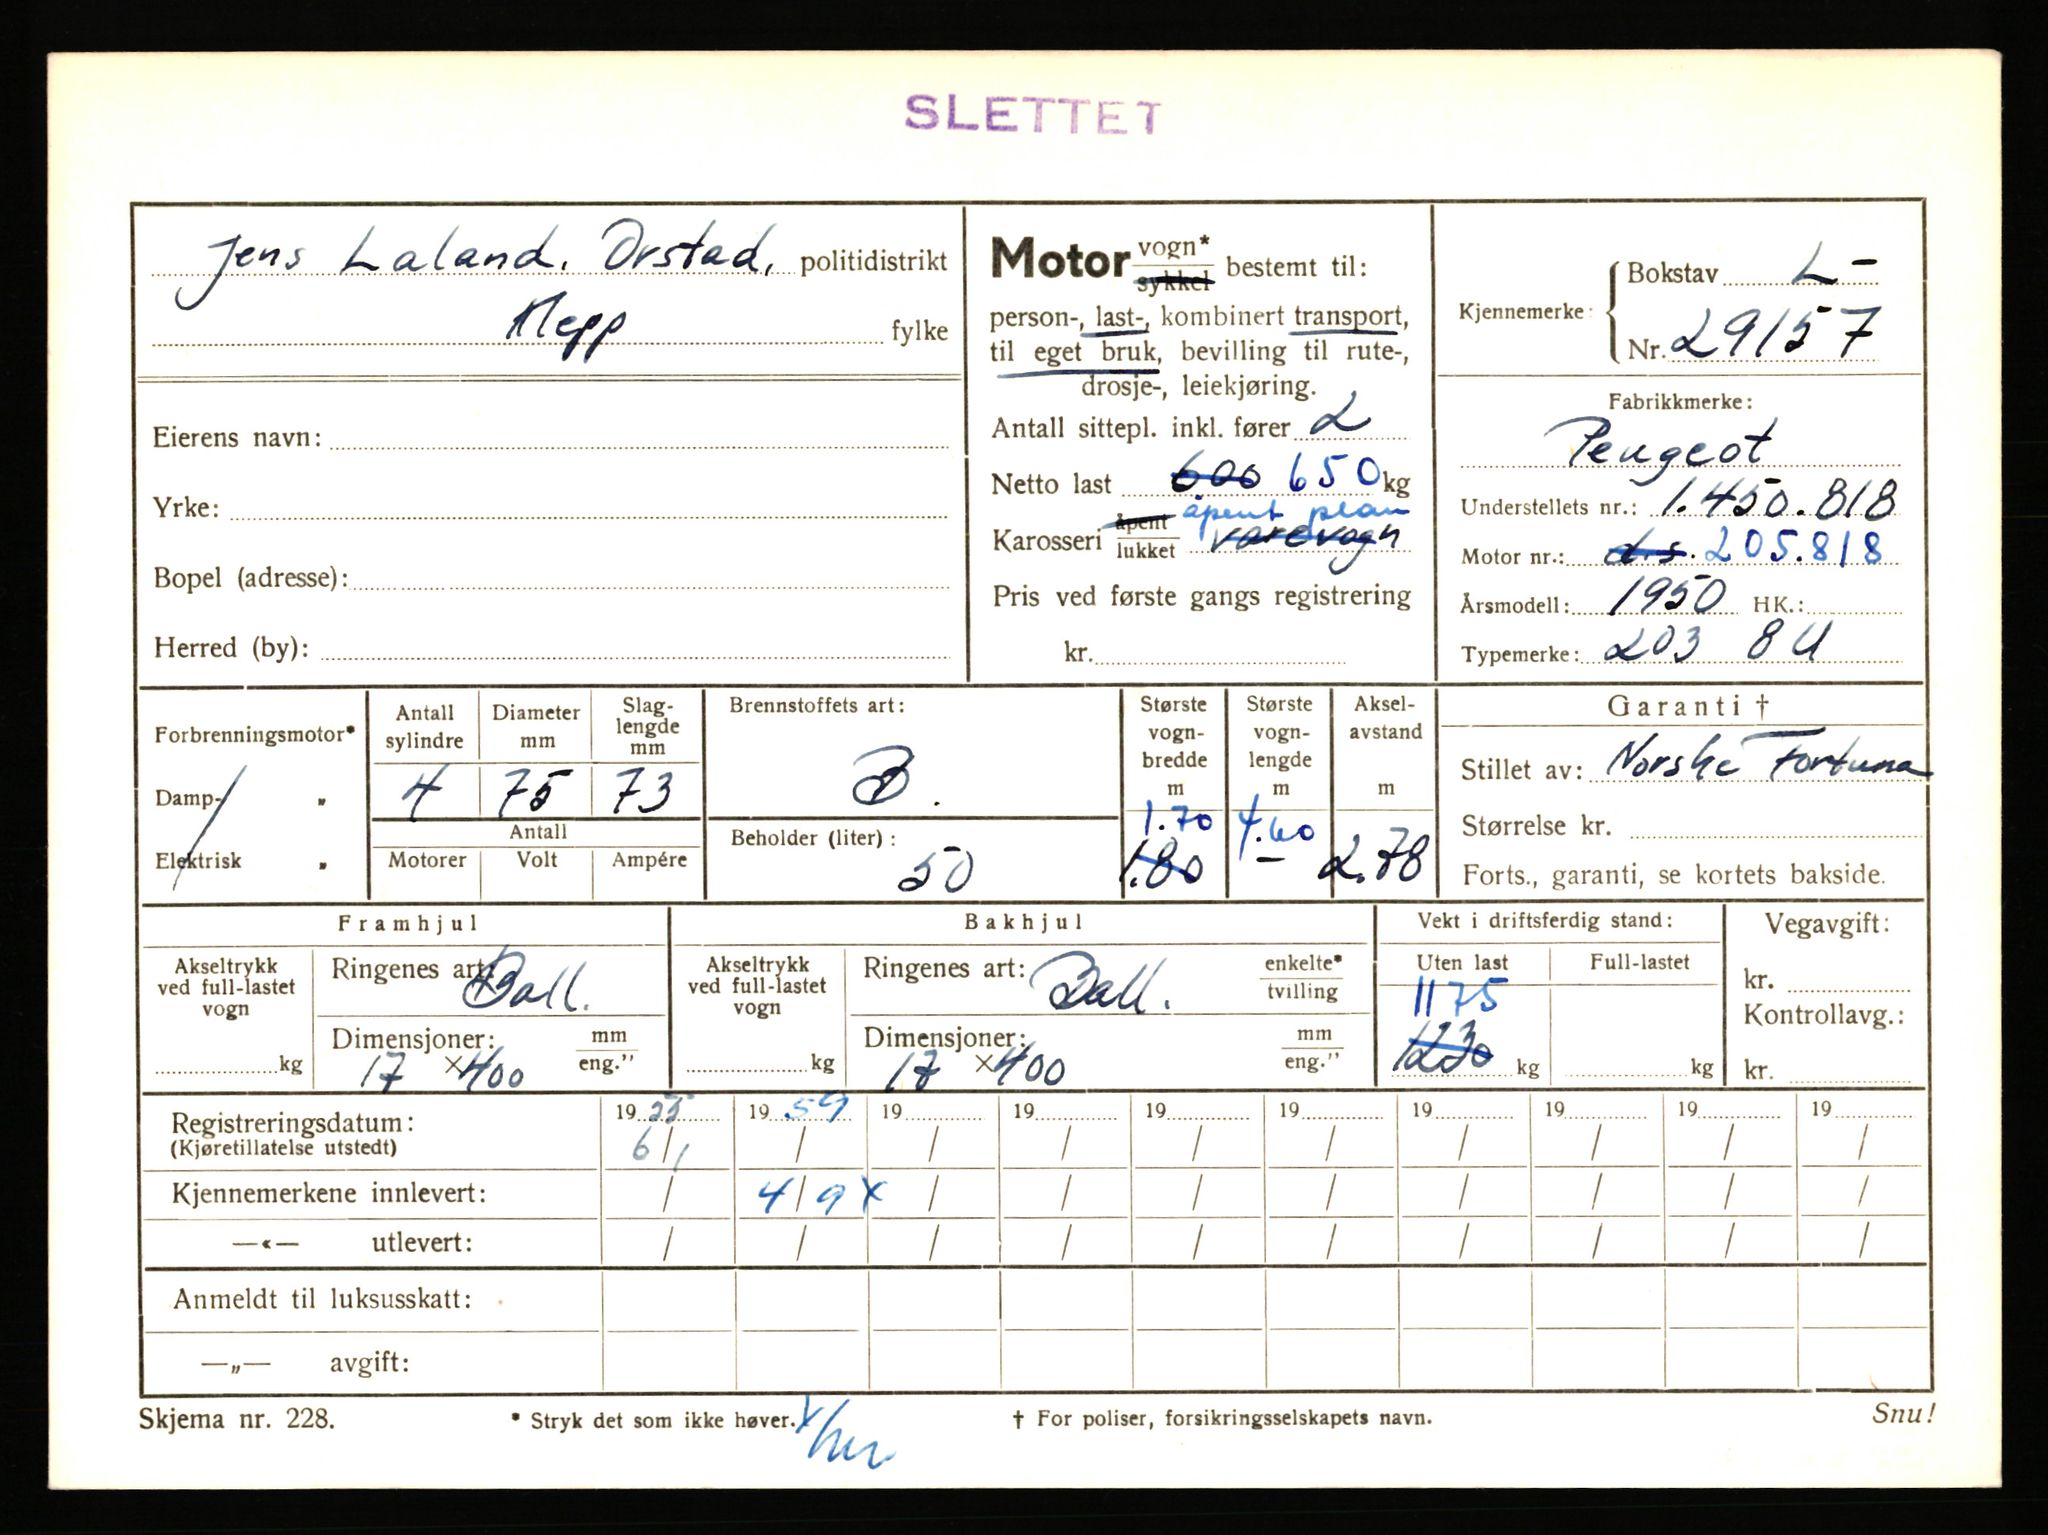 SLETTET
Jens Laland. Orstad, politidistrikt
Klepp fylke
Eierens navn:
Yrke:
Bopel (adresse):
Herred (by):
Motor vogn* sykkel bestemt til:
person-, last-, kombinert transport,
til eget bruk, bevilling til rute-,
drosje-, leiekjøring.
Antall sittepl. inkl. fører 2
Netto last 600 650 kg
Karosseri åpent lukket åpent plan varevogn
Pris ved første gangs registrering
kr.
Kjennemerke: Bokstav L-
Nr. 29157
Fabrikkmerke:
Peugeot
Understellets nr.: 1.450.818
Motor nr.: d.s. 205.818
Årsmodell: 1950 HK.:
Typemerke: 203 8U
Forbrenningsmotor*
Damp- „
Elektrisk „
Antall sylindre 4
Diameter mm 75
Slag-lengde mm 73
Antall
Motorer Volt Ampére
Brennstoffets art:
B.
Beholder (liter):
50
Største vogn-bredde m 1.70 1.80
Største vogn-lengde m 4.60 –
Aksel-avstand m 2.78
Garanti †
Stillet av: Norske Fortuna
Størrelse kr.
Forts., garanti, se kortets bakside.
Framhjul
Akseltrykk ved full-lastet vogn kg
Ringenes art: Ball.
Dimensjoner: 17 × 400 mm eng."
Bakhjul
Akseltrykk ved full-lastet vogn kg
Ringenes art: Ball. enkelte* tvilling
Dimensjoner: 17 × 400 mm eng."
Vekt i driftsferdig stand:
Uten last Full-lastet
1175
1230 kg kg
Vegavgift:
kr.
Kontrollavg.:
kr.
Registreringsdatum: 19 19 59 19 19 19 19 19 19 19 19
(Kjøretillatelse utstedt) 6/1 / / / / / / / / /
Kjennemerkene innlevert: / 4/9 x / / / / / / / /
—«— utlevert: / / / / / / / / / /
Anmeldt til luksusskatt:
—„— avgift:
Skjema nr. 228. * Stryk det som ikke høver. † For poliser, forsikringsselskapets navn. Snu!